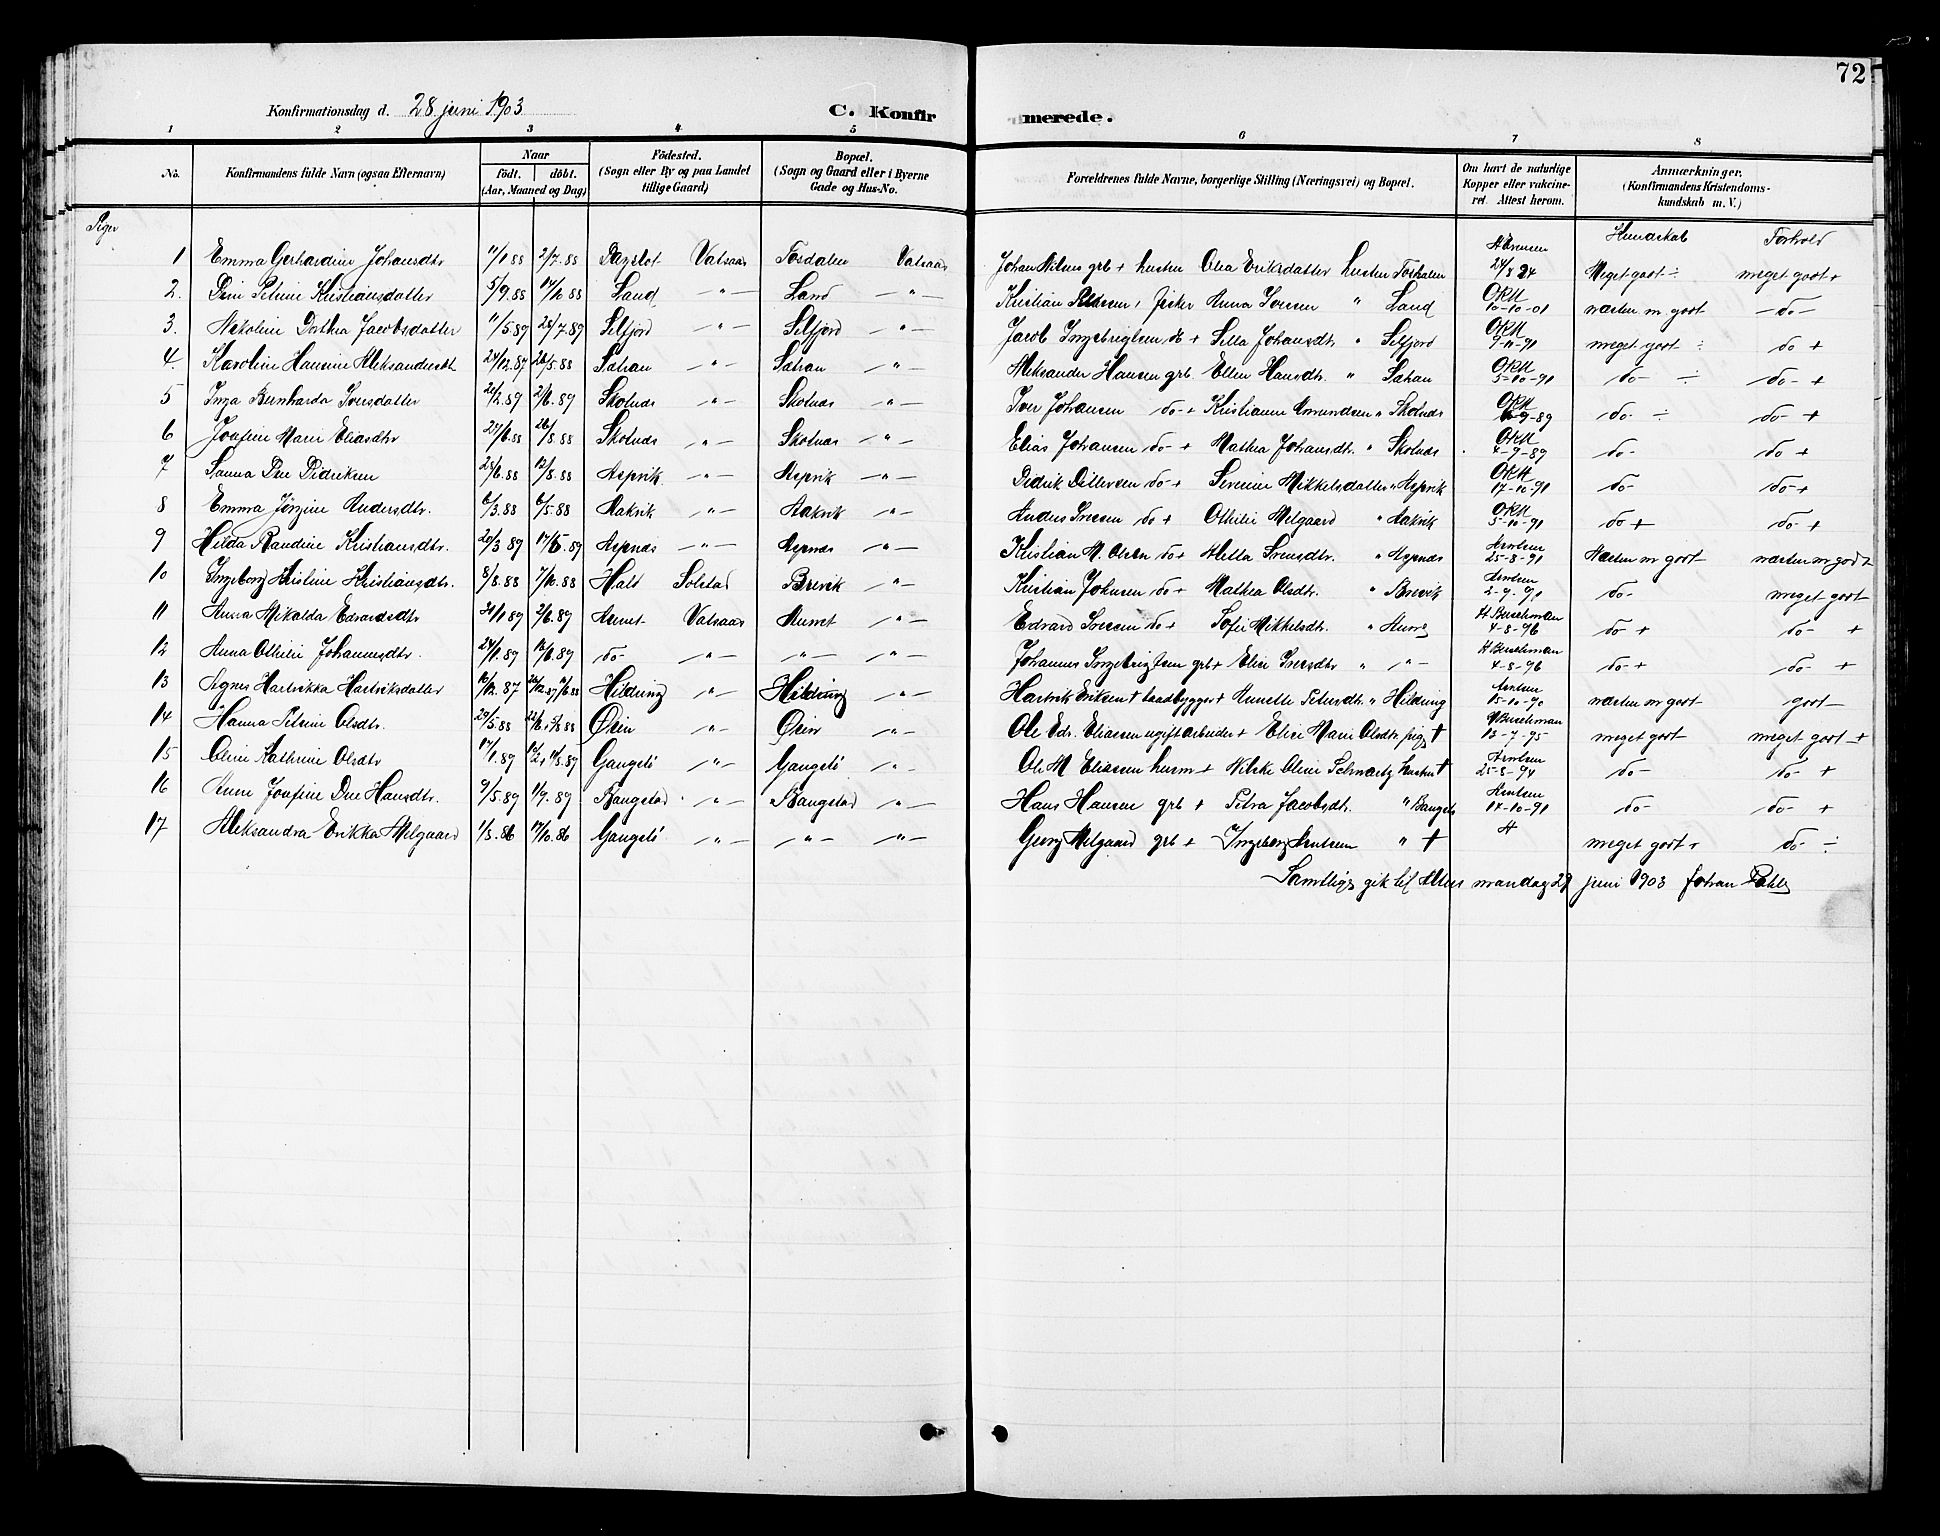 72
Konfirmationsdag d. 28 juni 1903 C. Konfirmerede.
1 2 3 4 5 6 7 8
No. Konfirmandens fulde Navn (ogsaa Efternavn) Naar født. døbt. (Aar, Maaned og Dag) Fødested. (Sogn eller By og paa Landet tillige Gaard) Bopæl. (Sogn og Gaard eller i Byerne Gade og Hus-No. Forældrenes fulde Navne, borgerlige Stilling (Næringsvei) og Bopæl. Om havt de naturlige Kopper eller vakcineret. Attest herom. Anmærkninger. (Konfirmandens Kristendomskundskab m. V.)
Piger Kundskab Forhold
1 Emma Gerhardine Johansdtr 11/1 88 2/7 88 Dagslot Vatsaas Tosdalen Vatsaas Johan Nilsen grb + hustru Olea Eriksdatter hustru Tosdalen Arntsen 24/8 Meget godt ÷ meget godt +
2. Petrine Kristiansdatter 5/9. 88 14/10 88 Sand -"- Sand -"- Kristian fisker Anna Iversen " Sand OKM 10-10-01 næsten m. godt -do-
3. Nikoline Dorthea Jacobsdatter 11/5. 89 28/7. 89 Selfjord -"- Selfjord -"- Jacob Ingebrigtsen do + Sella Johansdtr " Selfjord OKM 9-11-91 meget godt ÷ do +
4. Karoline Hansine Aleksandersdt 24/12. 87 26/5. 88 Sahan -"- Sahan -"- Aleksander Hansen grb. Ellen Hansdtr. " Sahan OKM 5-10-91 do- ÷ do- +
5 Inga Bernharda Iversdatter 21/2. 89 2/6. 89 Skolnæs " - Skolnæs -"- Iver Johansen do + Kristianne Amundsen " Skolnæs OKM 6-9-89 do- ÷ do- +
6 Josefine Marie Eliasdtr 29/6 88 26/8. 88 Skolnæs -"- Skolnæs -"- Elias Johansen do + Mathea Johansdtr. " Skolnæs OKM 4-9-89 do- do +
7 Sanna Didriksen 25/6. 88 12/8. 88 Aspvik -"- Aspvik -"- Didrik Ditlevsen do + Serine Mikkelsdatter " Aspvik OKM 17-10-91 do- do +
8 Emma Jørgine Andersdtr. 6/3. 88 6/5. 88 Aakvik -"- Aakvik -"- Anders Iversen do + Othilie Melgaard " Aakvik OKM 5-10-91 do + do- +
9 Hilda Randine Kristiansdtr. 20/3 89 17/6. 89 Aspnæs -"- Aspnæs -"- Kristian M. Olsen do + Metta Iversdtr. " Aspnæs Arntsen 25-8-91 Næsten m godt næsten m godt
10 Ingeborg Kristine Kristiansdtr. 8/8. 88 7/10. 88 Halt Solstad Brevik -"- Kristian Johnsen do + Mathea Olsdtr. " Brevik Arntsen 2-9-91 do- meget godt
11 Anna Mikalda Edvardsdtr 21/1 89 2/6. 89 Aunet Vatsaas Aunet -"- Edvard Iversen do + Sofie Mikkelsdtr. " Aune H Buschman 4-8-96 do + do- +
12 Anna Othilie Johannsdtr. 24/1. 89 16/6. 89 do- -"- -"- -"- Johannes Ingebrigtsen grb + Elise Iversdtr " -"- H Buschman 4-8-96 do + do- +
13 Agnes Hartvikka Hartviksdatter 10/12. 87 26/12. 87 Hildring -"- Hildring -"- Hartvik Eriksen † baadbygger + Annette Petersdtr. " Hildring Arntsen 15-10-90 næsten m godt godt
14 Hanna Petrine Olsdtr. 29/5. 88 Øxin -"- Øxin -"- Ole Edv. Eliassen ugift arbeider + Elise Marie Olsdtr. pige † H Buschman 13-7-95 meget godt meget godt +
15 Oline Kathrine Olsdtr 17/1. 89 Gangelø -"- Gangelø -"- Ole M Eliassen husm + Oline Schwartz hustru † Arntsen 25-8-94 do- do- +
16 Anne Josefine Hansdtr. 9/5. 89 1/9. 89 Bangstad -"- Bangstad -"- Hans Hansen grb + Petra Jacobsdtr. " Bangst Arntsen 17-10-91 do- do- +
17 Aleksandra Erikka Melgaard 1/3. 86 17/10. 86 Gangelø -"- -"- -"- Georg Melgaard grb + Ingeborg Arntsen " † meget godt + do- ÷
Samtlige gik til Alters mandag 29 juni 1903 Johan